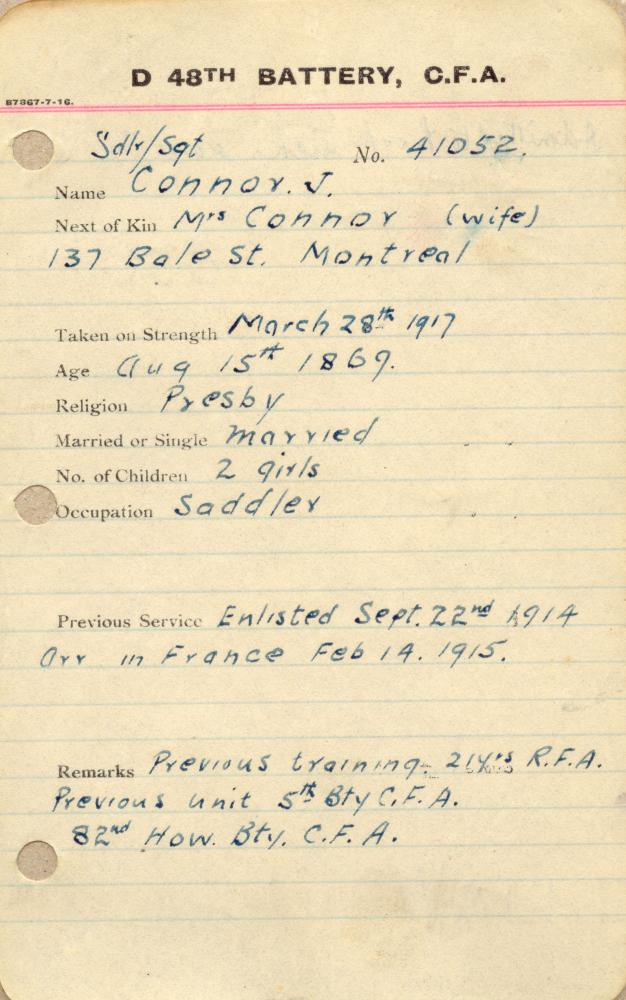 D 48TH BATTERY, C.F.A.
87867-7-16.
Sdlr/Sgt No. 41052.
Name Connor. J.
Next of Kin Mrs Connor (wife)
137 Bale St. Montreal
Taken on Strength March 28th 1917
Age Aug 15th 1869.
Religion Presby
Married or Single married
No. of Children 2 girls
Occupation Saddler
Previous Service Enlisted Sept. 22nd 1914
Arr in France Feb 14. 1915.
Remarks Previous training. 21yrs R.F.A.
Previous unit 5th Bty C.F.A.
82nd How. Bty. C.F.A.